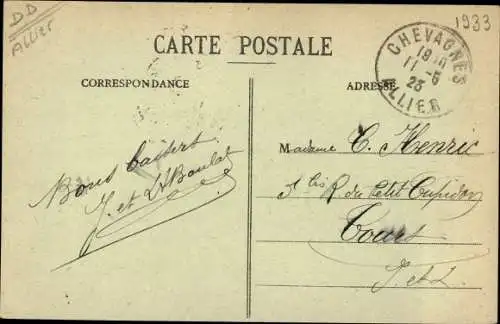 DD
Allier
1933
CHEVAGNES
18 30
11 -5
23
ALLIER
CARTE POSTALE
CORRESPONDANCE
ADRESSE
Bons baisers
J. et
Madame C. Henric
bis R du Petit Cupidon
Tours
I. et L.